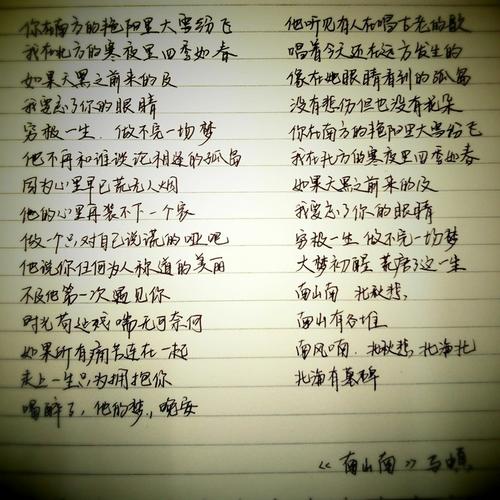 你在南方的艳阳里大雪纷飞
我在北方的寒夜里四季如春
如果天黑之前来的及
我要忘了你的眼睛
穷极一生 做不完一场梦
他不再和谁谈论相逢的孤岛
因为心里早已荒无人烟
他的心里再装不下一个家
做一个只对自己说谎的哑吧
他说你任何为人称道的美丽
不及他第一次遇见你
时光苟延残喘无可奈何
如果所有痛苦连在一起
走上一生只为拥抱你
喝醉了,他的梦.,晚安
他听见有人在唱古老的歌
唱着今天还在远方发生的
像在她眼睛看到的孤岛
没有悲伤但也没有花朵
你在南方的艳阳里大雪纷飞
我在北方的寒夜里四季如春
如果天黑之前来的及
我要忘了你的眼睛
穷极一生 做不完一场梦
大梦初醒 荒唐了这一生
南山南 北秋悲,
南山有谷堆
南风喃,北秋悲,北海北
北海有墓碑
《南山南》马頔